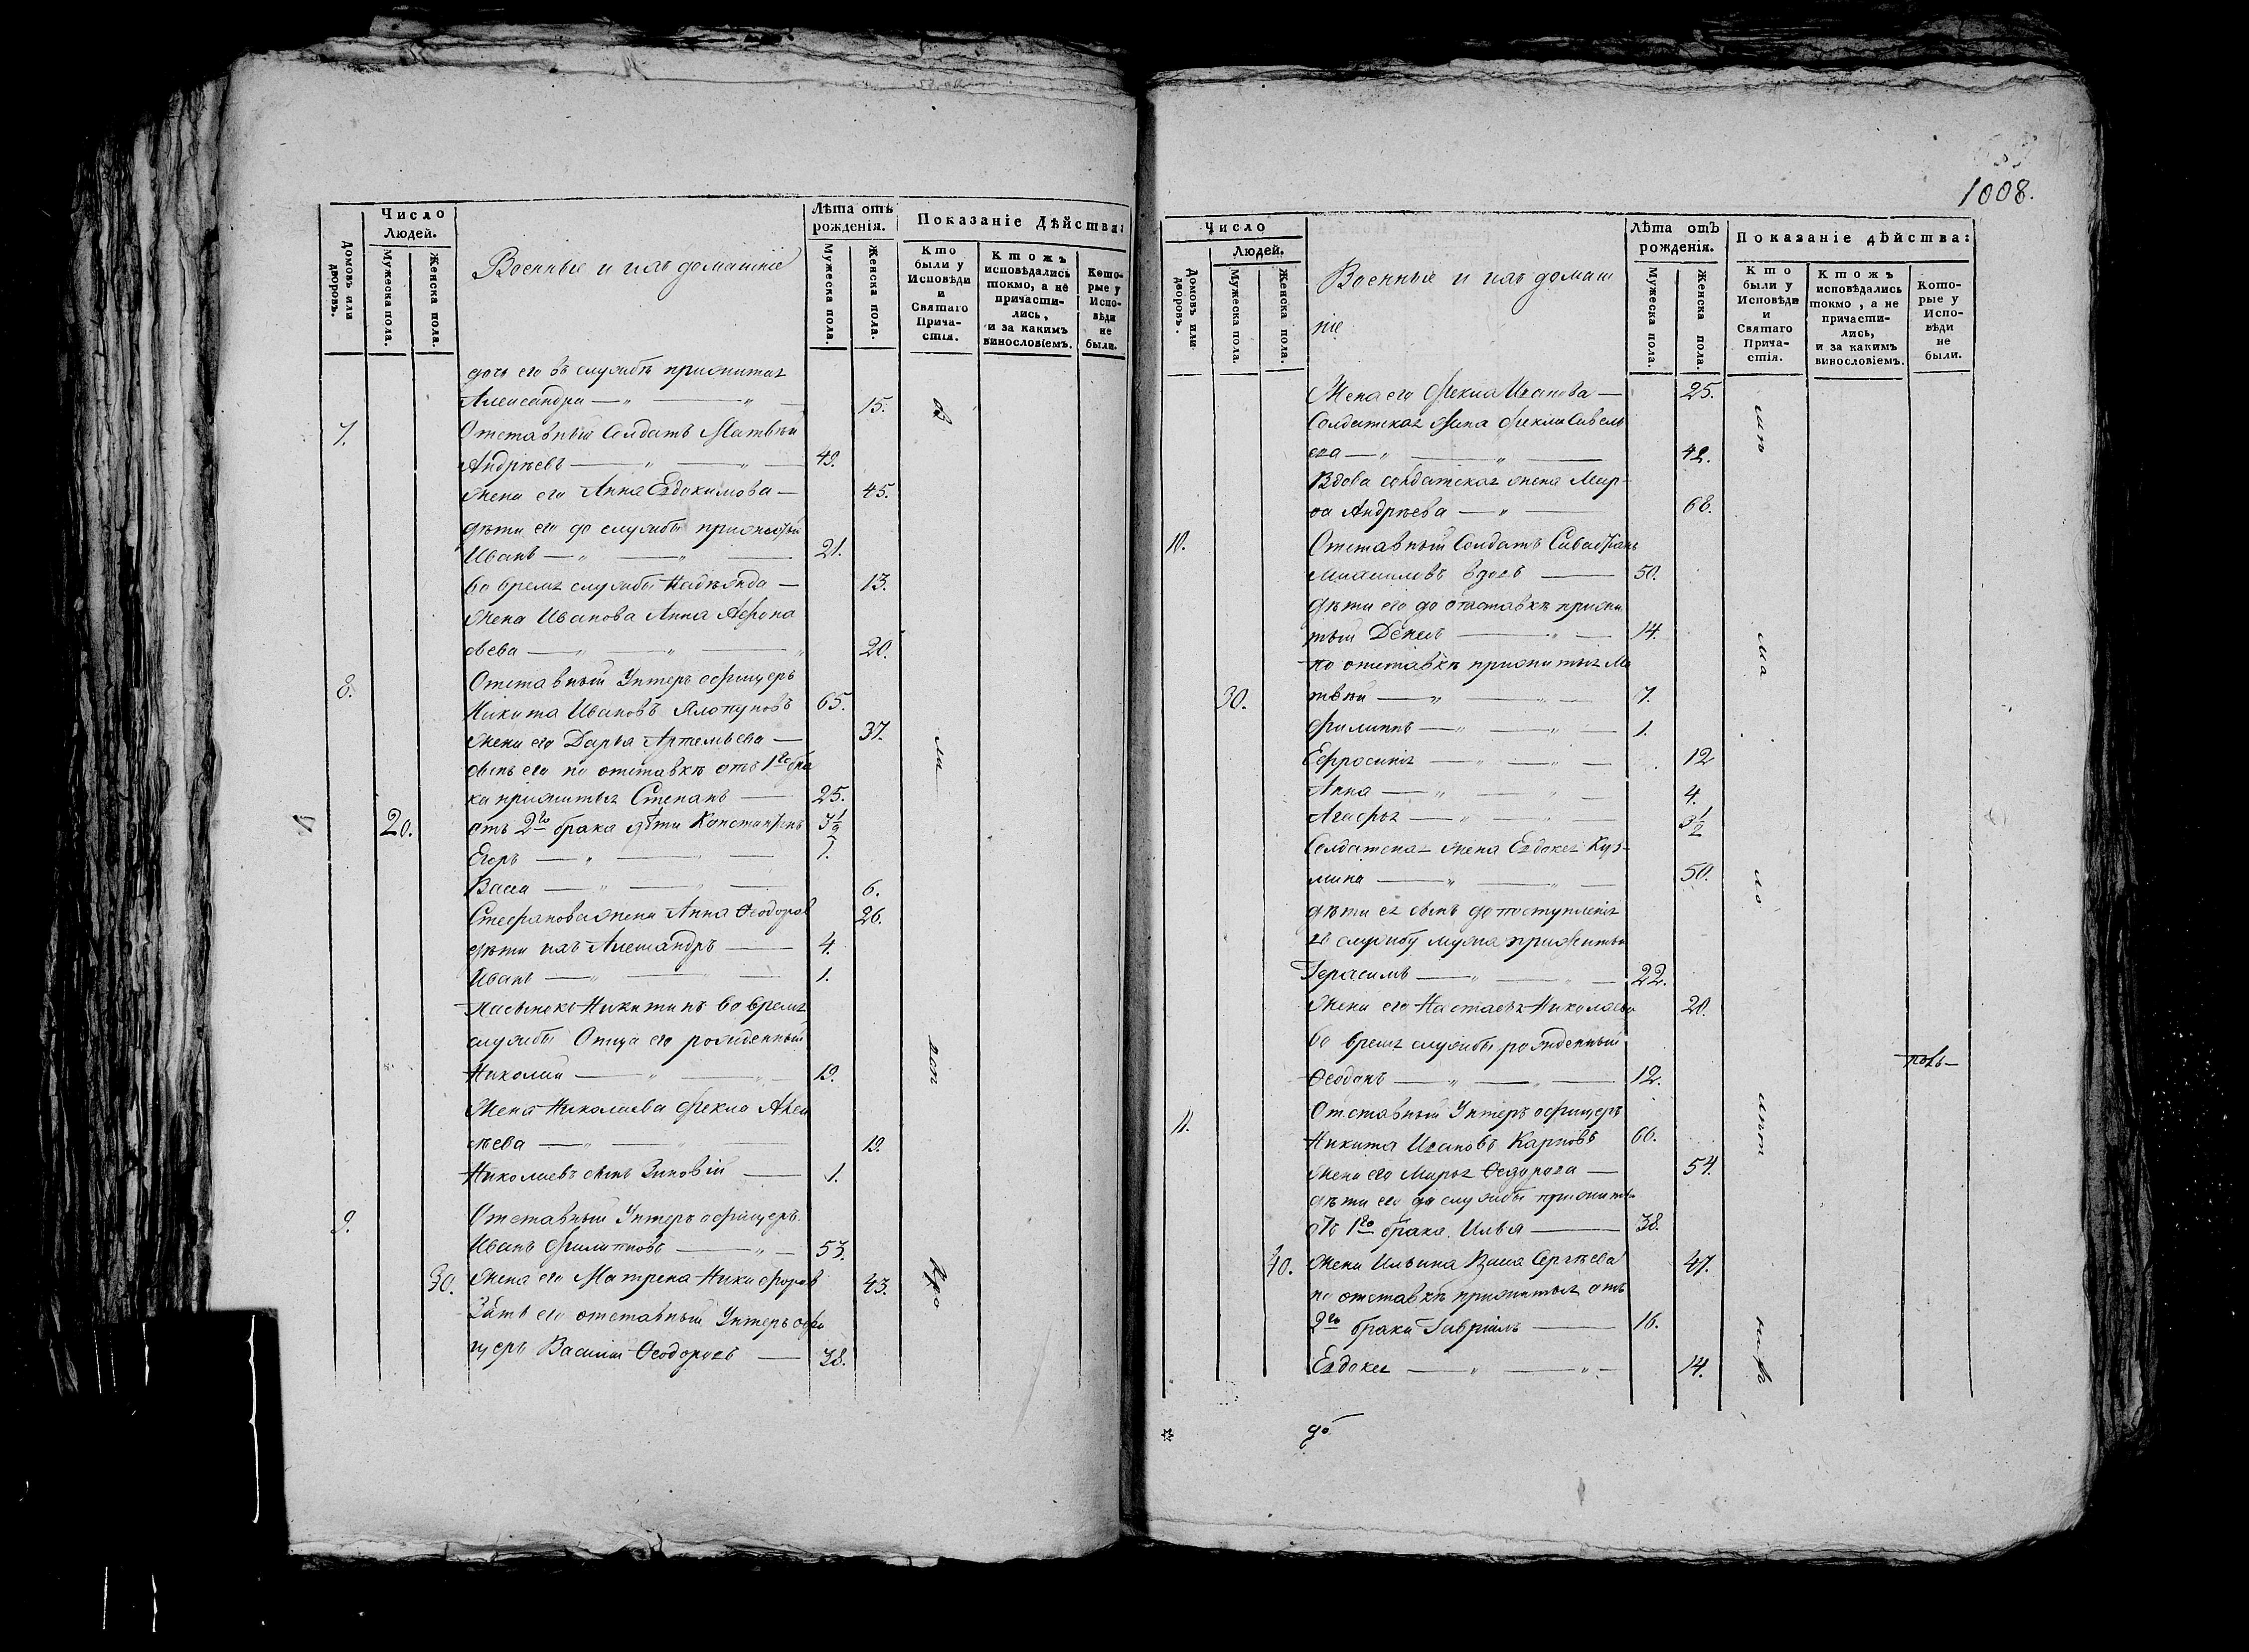 Домовъ или дворовъ.
Число
Людей.
Мужеска пола.
Женска пола.
Военные и ихъ домашніе
Лѣта отъ
рожденія.
Мужеска пола.
Женска пола.
Показаніе дѣйства:
Кто
были у
Исповѣди
и
Святаго
Прича-
стія.
Ктожъ
исповѣдались
токмо, а не
причасти-
лись,
и за какимъ
винословіемъ.
Кото-
рые у
Испо-
вѣди
не
были.
дочь его въ службѣ прижитая
Александра 15.
7. Отставный Солдатъ Матвѣй
Андрѣевъ 49.
жена его Анна Евдокимова 45.
дѣти его до службы прижитый
Иванъ 21.
во время службы Надѣжда 13.
Жена Иванова Анна Афона
сьева 20.
8. Отставный Унтеръ офицеръ
Никита Ивановъ 65.
жена его Дарья Артемьева 37.
сынъ его по отставкѣ отъ 1го бра
ка прижитыя Степанъ 25.
20. отъ 2го брака дѣти Константинъ 3½
Егоръ 1.
Васса 6.
Стефанова жена Анна Ѳеодоров 26.
дѣти ихъ Александръ 4.
Иванъ 1.
Пасынокъ Никитинъ во время
службы Отца его рожденный
Николай 19.
Жена Николаева Фекла Алек
сѣева 19.
Николаевъ сынъ Зиновій 1.
9. Отставный Унтеръ офицеръ
Иванъ Филипповъ 53.
30. Жена его Матрена Никифоров 43.
Зять его отставный Унтеръ офи
церъ Василій Ѳеодоровъ 38.
1008.
Число
Людей.
Домовъ или дворовъ.
Мужеска пола.
Женска пола.
Военные и ихъ домаш
ніе
Лѣта отъ
рожденія.
Мужеска пола.
Женска пола.
Показаніе дѣйства:
Кто
были у
Исповѣди
и
Святаго
Прича-
стія.
Ктожъ
исповѣдались
токмо, а не
причасти-
лись,
и за какимъ
винословіемъ.
Кото-
рые у
Испо-
вѣди
не
были.
Жена его Фекла Иванова 25.
Солдатская жена Фекла Савель
ева 42.
Вдова солдатская жена Мар-
ѳа Андрѣева 68.
10. Отставный Солдатъ
Михайловъ вдовъ 50.
дѣти его до отставкѣ прижи
тый 14.
по отставкѣ прижитыя Ма
30. твѣй 7.
Филиппъ 1.
Ефросинія 12
Анна 4.
Агафья ½
Солдатская жена Евдокея Куз-
мина 50.
дѣти ея сынъ до поступленія
въ службу мужа прижитый
Герасимъ 22.
Жена его Настасья Николаева 20.
во время службы рожденный
Ѳеодоръ 12.
11. Отставный Унтеръ офицеръ
Никита Ивановъ Карповъ 66.
Жена его Марья Ѳедорова 54.
дѣти его до службы прижиты
отъ 1го брака Илья 38.
40. Жена Ильина Васса Сергѣева 47.
по отставкѣ прижитыя отъ
2го брака Гавріилъ 16.
Евдокея 14.